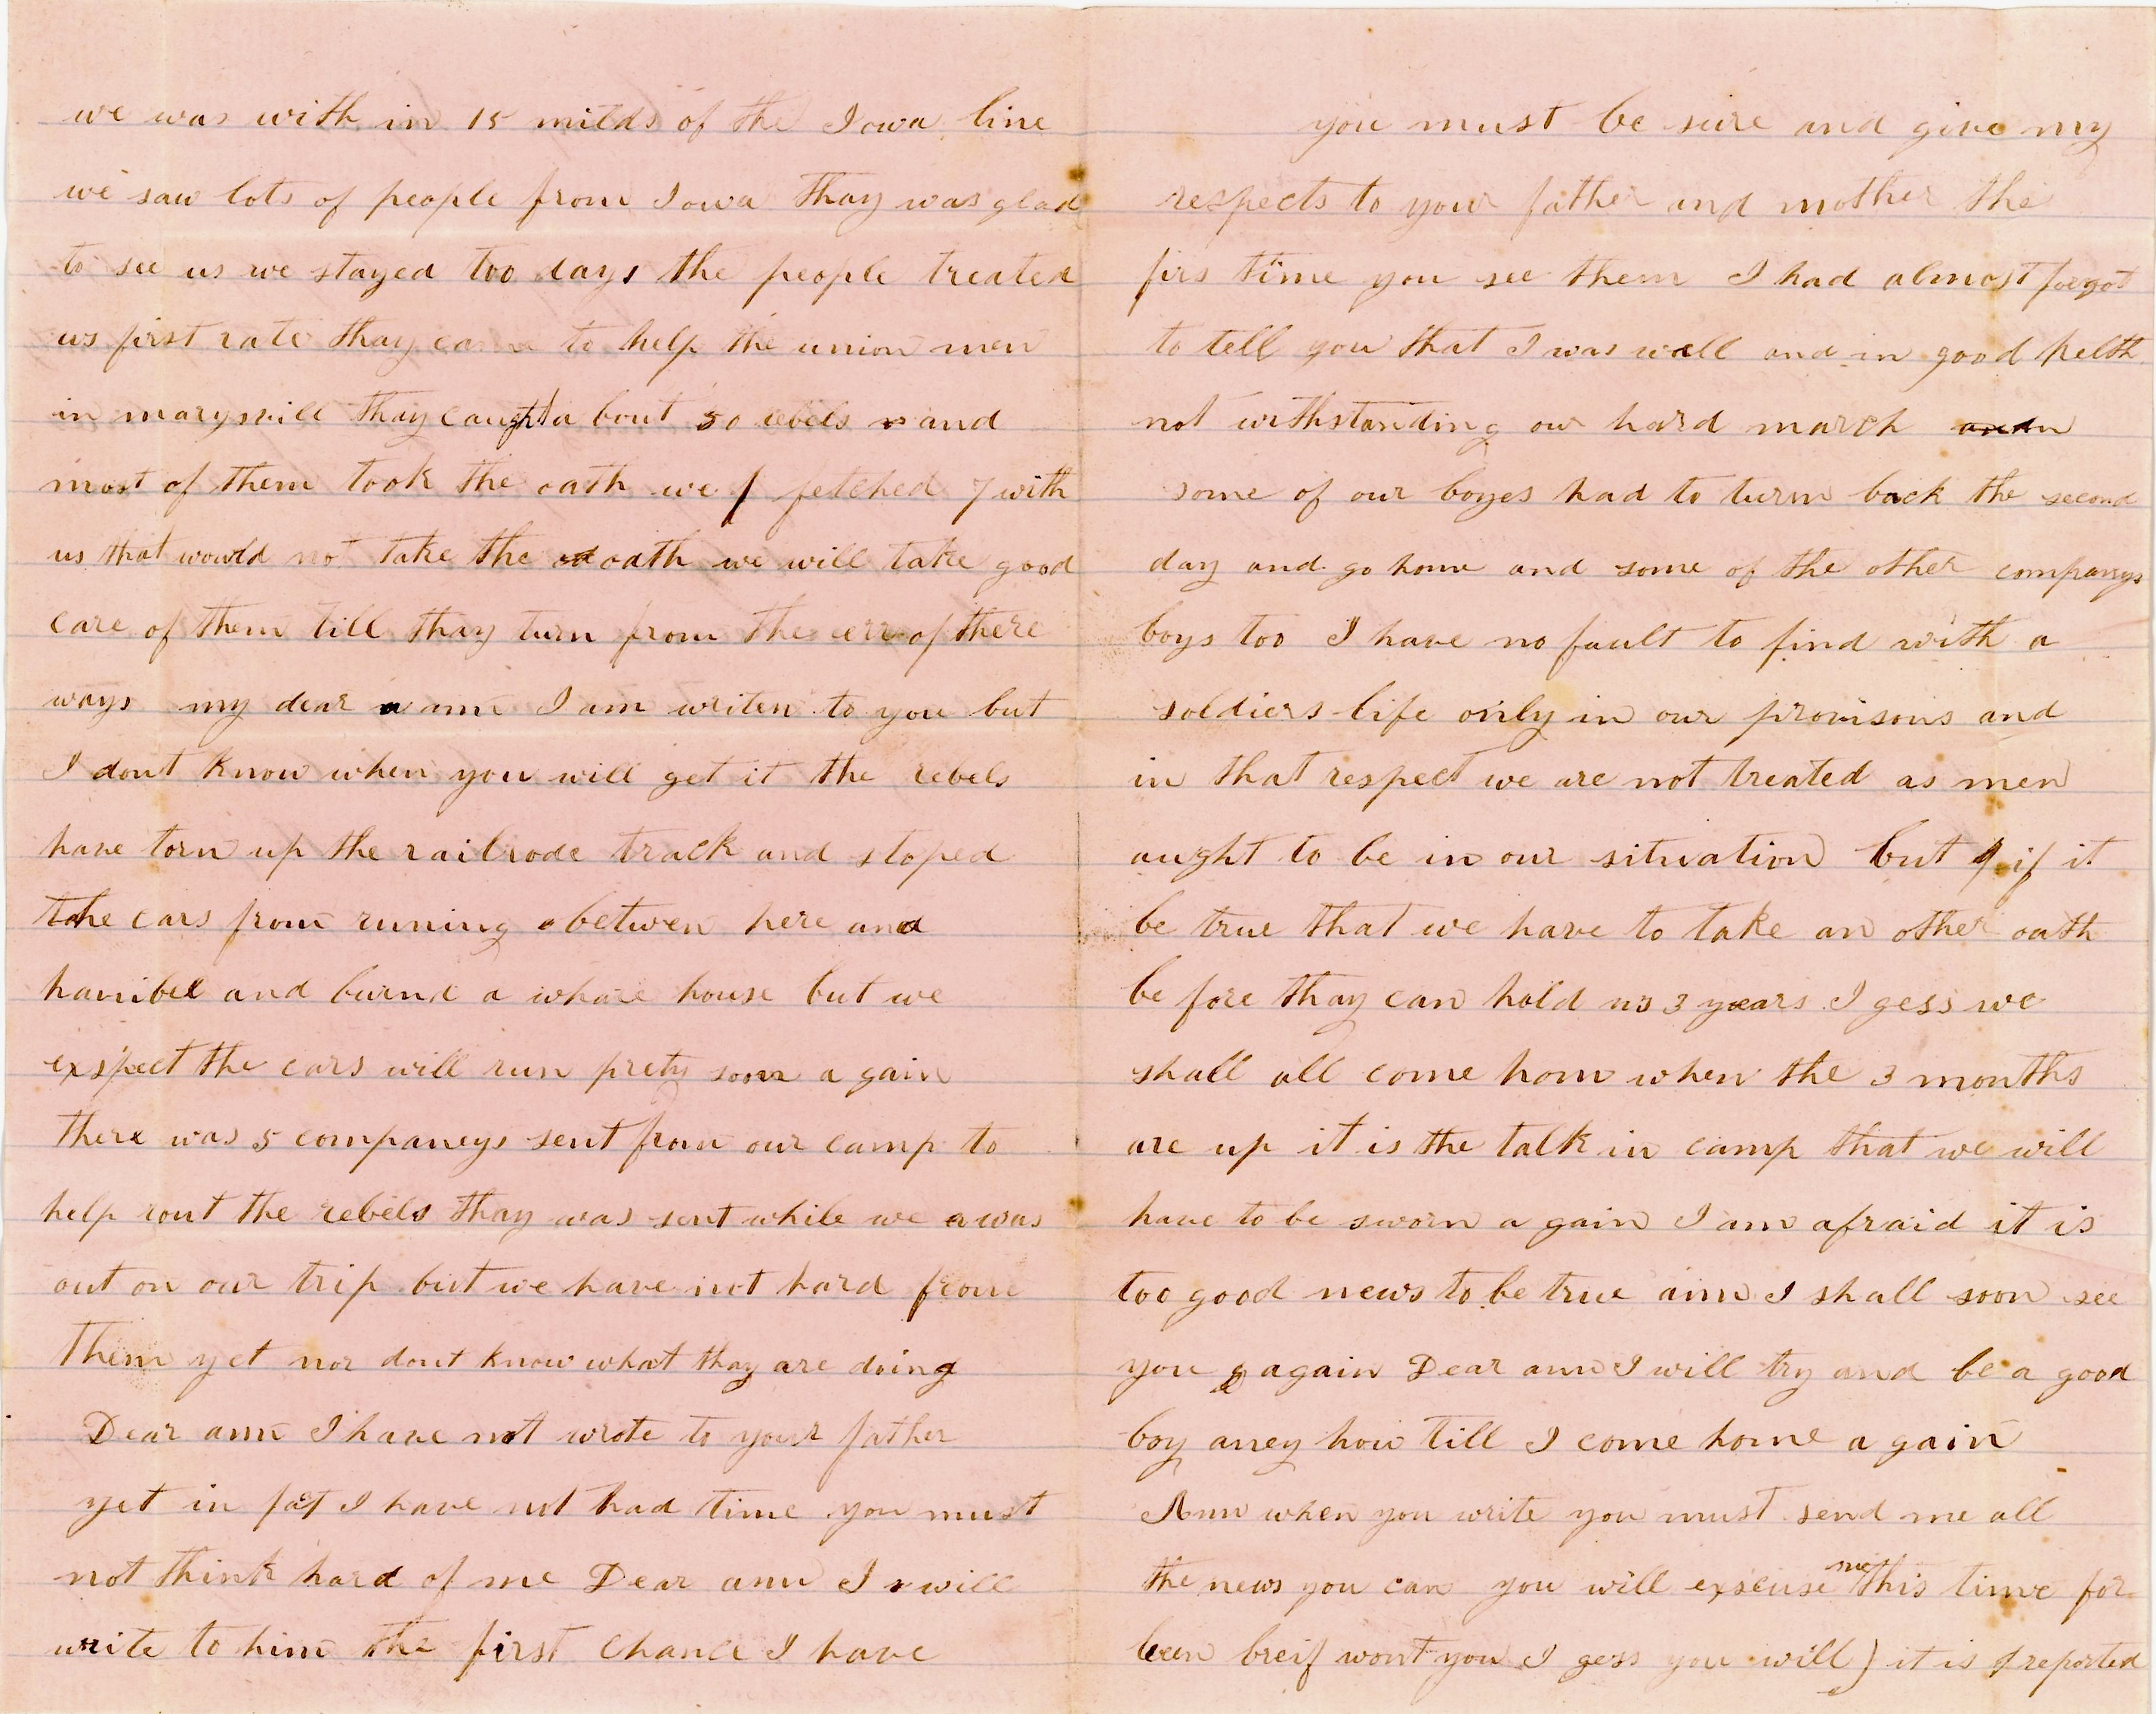 we was with in 15 milds of the Iowa line
we saw lots of people from Iowa thay was glad
to see us we stayed too days the people treated
us first rate thay came to help the union men
in marysvill thay caught a bout 50 rebels and
most of them took the oath we fetched 7 with
us that would not take the oath we will take good
care of them till thay turn from the err of there
ways my dear ann I am writen to you but
I dont know when you will get it the rebels
have torn up the railrode track and stoped
the cars from runing betwen here and
hanibel and burnd a whare house but we
exspect the cars will run prety soon a gain
there was 5 companeys sent from our camp to
help rout the rebels thay was sent while we was
out on our trip but we have not hard from
them yet nor dont know what thay are doing
Dear ann I have not wrote to your father
yet in fact I have not had time you must
not think hard of me Dear ann I will
write to him the first chance I have
you must be sure and give my
respects to your father and mother the
firs time you see them I had almost forgot
to tell you that I was well and in good helth
not withstanding our hard march
some of our boyes had to turn back the second
day and go home and some of the other companys
boys too I have no fault to find with a
soldiers life only in our provisons and
in that respect we are not treated as men
aught to be in our situation but if it
be true that we have to take an other oath
be fore thay can hold us 3 years I gess we
shall all come hom when the 3 months
are up it is the talk in camp that we will
have to be sworn a gain I am afraid it is
too good news to be true ann I shall soon see
you again Dear ann I will try and be a good
boy aney how till I come home a gain
Ann when you write you must send me all
the news you can you will exscuse me this time for
been breif wont you I gess you will) it is reported